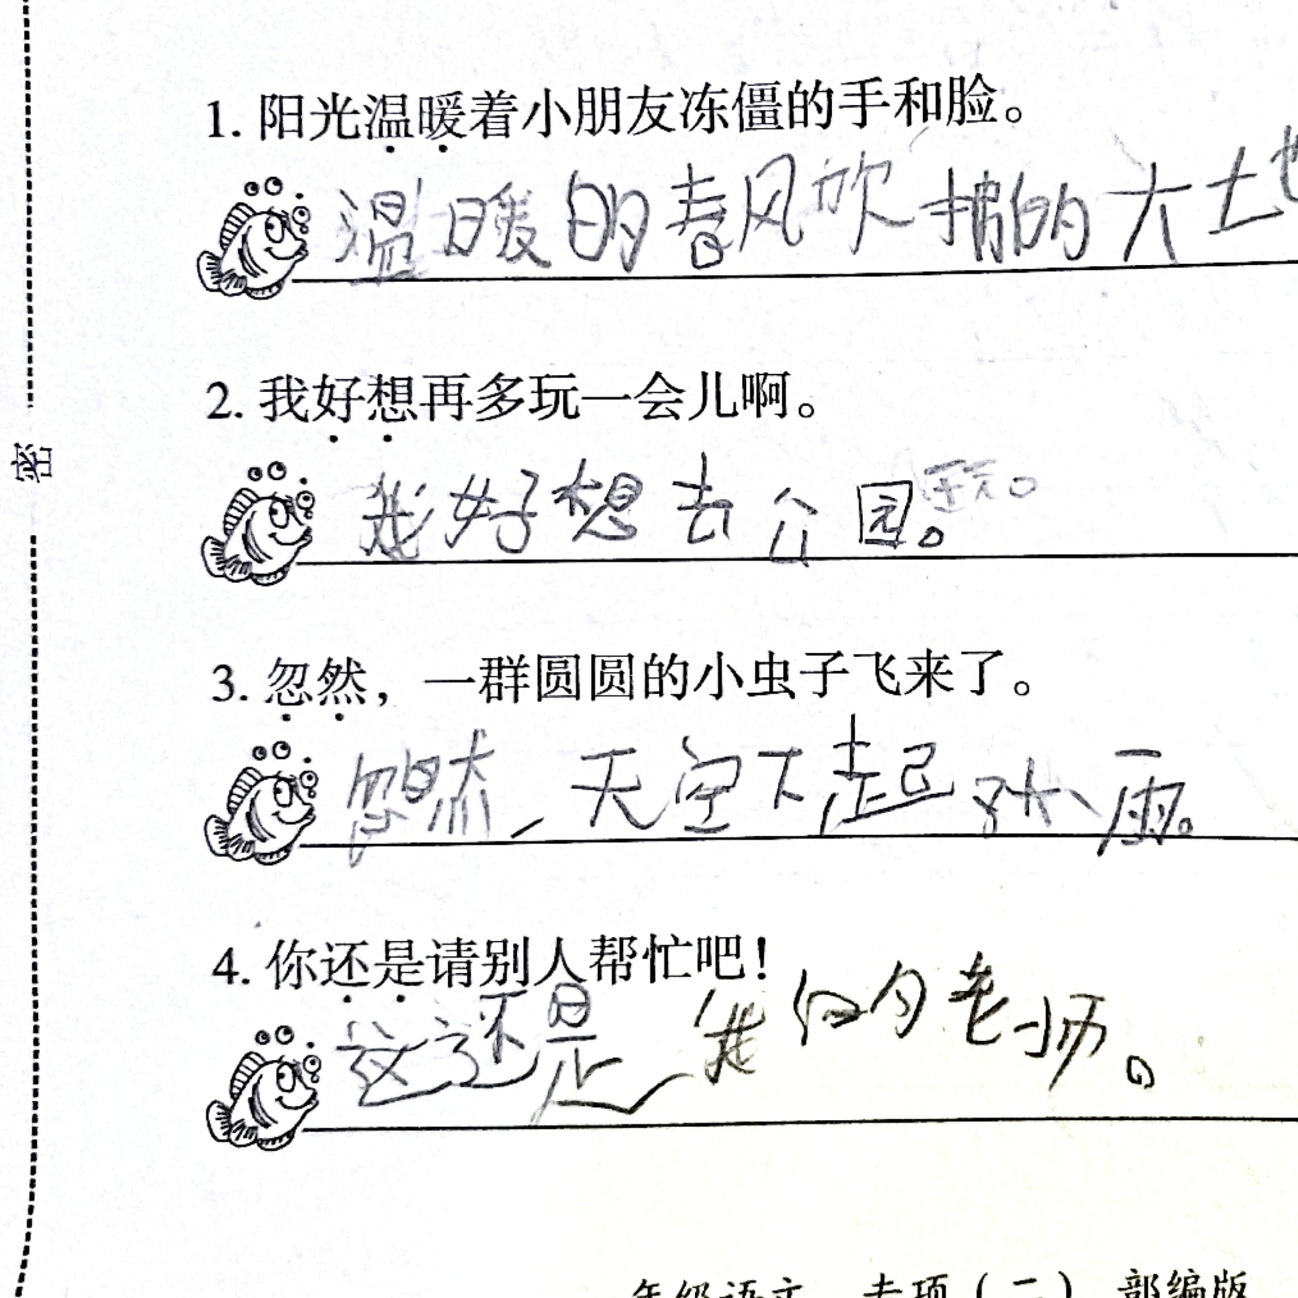 1. 阳光温暖着小朋友冻僵的手和脸。
温暖的春风吹拂的大土地
2. 我好想再多玩一会儿啊。
我好想去公园。玩。
3. 忽然，一群圆圆的小虫子飞来了。
忽然，天空下起小雨。
4. 你还是请别人帮忙吧！
这还是我们的老师。
密
年级语文 专项（二） 部编版